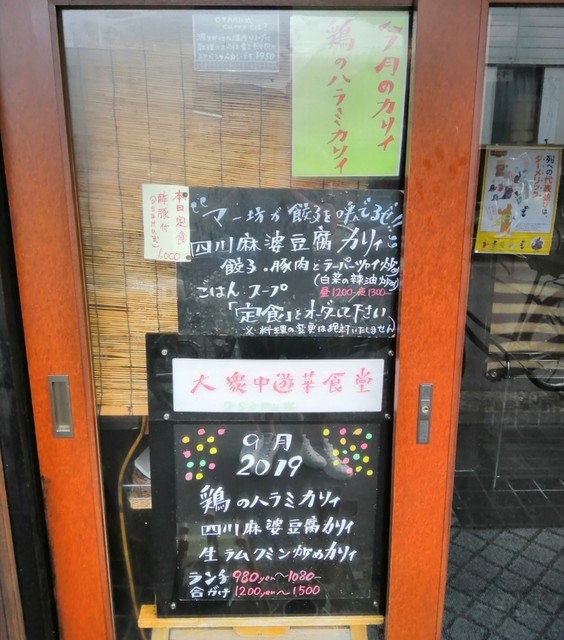 今月のカリィ
鶏のハラミカリィ
本日定食
1,000
マー坊が餃子を呼でるぜ!!
四川麻婆豆腐カリィ
餃子・豚肉とラーパーツァイ炒
(白菜の辣油炒)
昼1200-夜1300-
ごはん・スープ
「定食」とオーダーして下さい
※料理の変更は絶対いたしません
大衆中遊華食堂
9月
2019
鶏のハラミカリィ
四川麻婆豆腐カリィ
生ラムクミン炒めカリィ
ランチ 980yen〜1080-
合がけ 1200yen〜1500